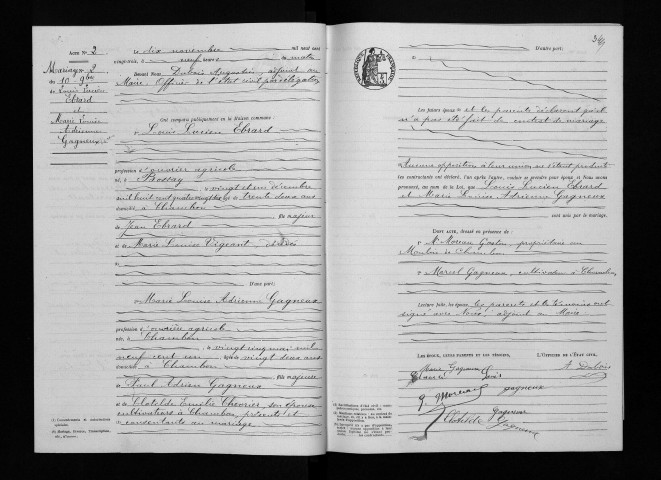 Acte N° 2
Mariage 2
du
10 9bre
de Louis Lucien
Ebrard
et
Marie Louise
Adrienne
Gagneux
Le dix novembre mil neuf cent
vingt-trois, à neuf heures du matin
Devant Nous Dubois Augustin adjoint au
Maire, Officier de l'Etat civil par délégation
Ont comparu publiquement en la Maison commune :
1° Louis Lucien Ebrard
profession d'ouvrier agricole
né à Bossay
le vingt et un décembre
mil huit cent quatre vingt
trente deux ans
à Chambon
fils majeur
de Jean Ebrard
et de Marie Louise Vigeant, décédés
D'une part :
2° Marie Louise Adrienne Gagneux
profession d'ouvrière agricole
née à Chambon
le vingt cinq mai mil
neuf cent un vingt deux ans
à Chambon
fille majeure
de Paul Adrien Gagneux
et de Clotilde Emilie son épouse
cultivateurs à Chambon, présents et
consentants au mariage
349
D'autre part :
Les futurs époux et les parents déclarent qu'il
n'a pas été fait de contrat de mariage
Aucune opposition à leur union ne s'étant produite
les contractants ont déclaré, l'un après l'autre, vouloir se prendre pour époux et Nous avons
prononcé, au nom de la Loi, que Louis Lucien Ebrard
et Marie Louise Adrienne Gagneux
sont unis par le mariage.
Dont acte, dressé en présence de :
1° Moreau Gaston, propriétaire au
Moulin de Chambon
2° Marcel Gagneux, cultivateur à Chambon
Lecture faite, les époux, les parents et les témoins ont
signé avec Nous, adjoint au Maire
Les époux, leurs parents et les témoins,
L'Officier de l'État civil,
Marie Gagneux
Ebrard Louis
A. Dubois
G Moreau
Gagneux
Clotilde Gagneux